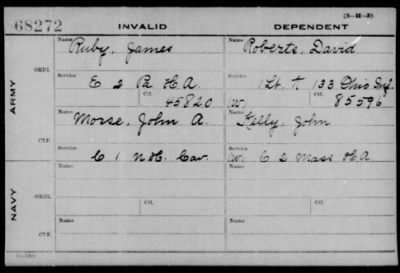 68272 INVALID DEPENDENT (3-H-3)
ARMY
ORIG.
Name Ruby, James
Name Roberts, David
Service E 2 Pa H.A.
Service 1 Lt. K 133 Ohio Inf.
Ctf. 45820
(W) Ctf. 85596
CTF.
Name Morse, John A.
Name Kelly, John
Service C 1 N.H. Cav.
Service (W) C 2 Mass H.A
NAVY
ORIG.
Name Ctf.
Name Ctf.
CTF.
Name
Name